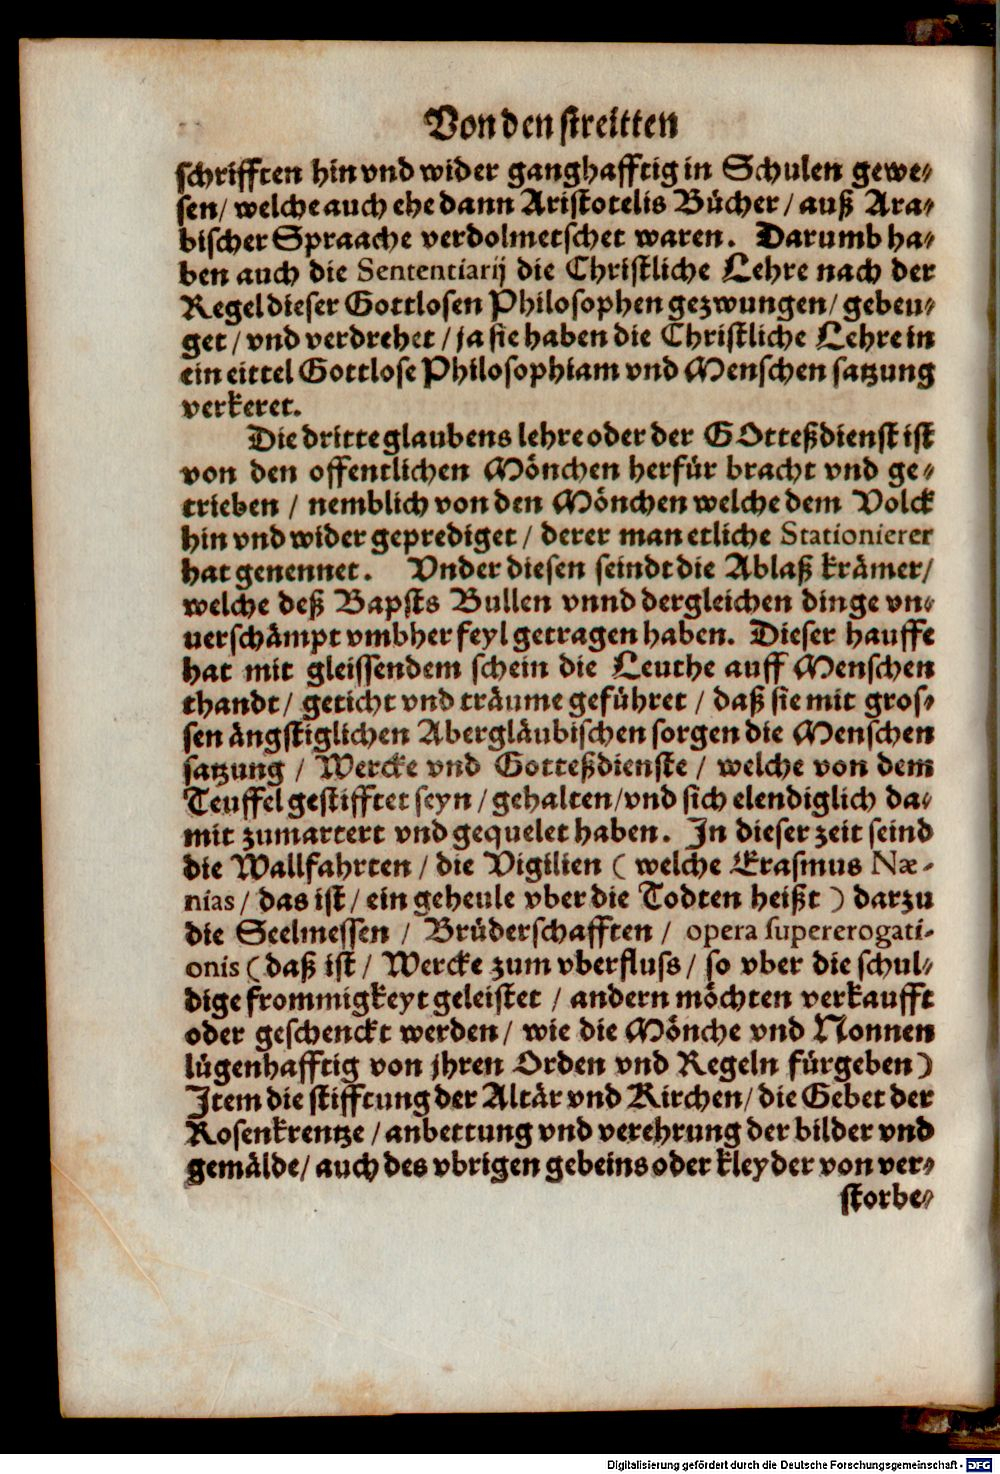 Von den streitten
schrifften hin vnd wider ganghafftig in Schulen gewe⸗
sen/ welche auch ehe dann Aristotelis Bücher/ auß Ara⸗
bischer Spraache verdolmetschet waren. Darumb ha⸗
ben auch die Sententiarij die Christliche Lehre nach der
Regel dieser Gottlosen Philosophen gezwungen/ gebeu⸗
get/ vnd verdrehet/ ja sie haben die Christliche Lehre in
ein eittel Gottlose Philosophiam vnd Menschen satzung
verkeret.
Die dritte glaubens lehre oder der GOtteßdienst ist
von den offentlichen Mönchen herfür bracht vnd ge⸗
trieben/ nemblich von den Mönchen welche dem Volck
hin vnd wider geprediget/ derer man etliche Stationierer
hat genennet. Vnder diesen seindt die Ablaß krämer/
welche deß Bapsts Bullen vnnd dergleichen dinge vn⸗
uerschämpt vmbher feyl getragen haben. Dieser hauffe
hat mit gleissendem schein die Leuthe auff Menschen
thandt/ geticht vnd träume geführet/ daß sie mit gros⸗
sen ängstiglichen Abergläubischen sorgen die Menschen
satzung/ Wercke vnd Gotteßdienste/ welche von dem
Teuffel gestifftet seyn/ gehalten/ vnd sich elendiglich da⸗
mit zumartert vnd gequelet haben. In dieser zeit seind
die Wallfahrten/ die Vigilien (welche Erasmus Næ-
nias/ das ist/ ein geheule vber die Todten heißt) darzu
die Seelmessen/ Brüderschafften/ opera supererogati-
onis (daß ist/ Wercke zum vberfluss/ so vber die schul⸗
dige frommigkeyt geleistet/ andern möchten verkaufft
oder geschenckt werden/ wie die Mönche vnd Nonnen
lügenhafftig von jhren Orden vnd Regeln fürgeben)
Item die stifftung der Altär vnd Kirchen/ die Gebet der
Rosenkrentze/ anbettung vnd verehrung der bilder vnd
gemälde/ auch des vbrigen gebeins oder kleyder von ver⸗
storbe⸗
Digitalisierung gefördert durch die Deutsche Forschungsgemeinschaft - DFG